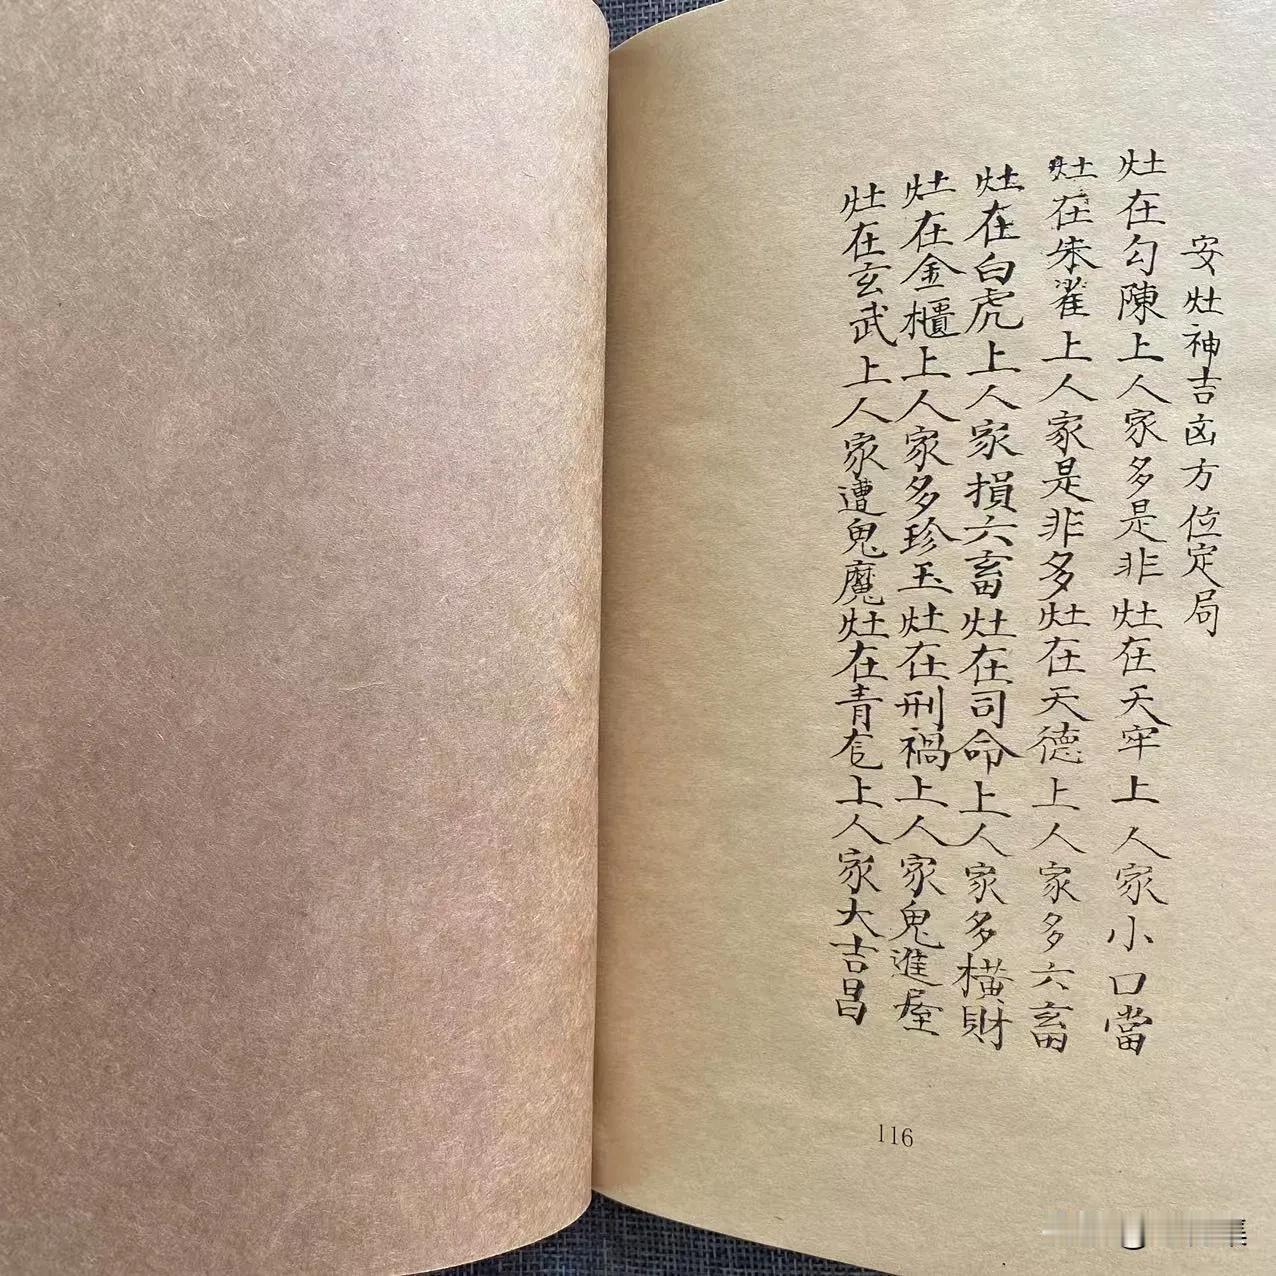 安灶神吉凶方位定局
灶在勾陳上人家多是非灶在天牢上人家小口當
灶在朱雀上人家是非多灶在天德上人家多六畜
灶在白虎上人家損六畜灶在司命上人家多橫財
灶在金櫃上人家多珍玉灶在刑禍上人家鬼進屋
灶在玄武上人家遭鬼魔灶在青龙上人家大吉昌
116